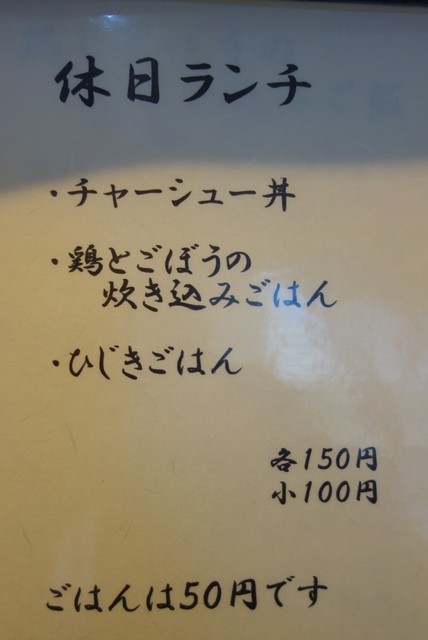 休日ランチ
・チャーシュー丼
・鶏とごぼうの
炊き込みごはん
・ひじきごはん
各150円
小100円
ごはんは50円です